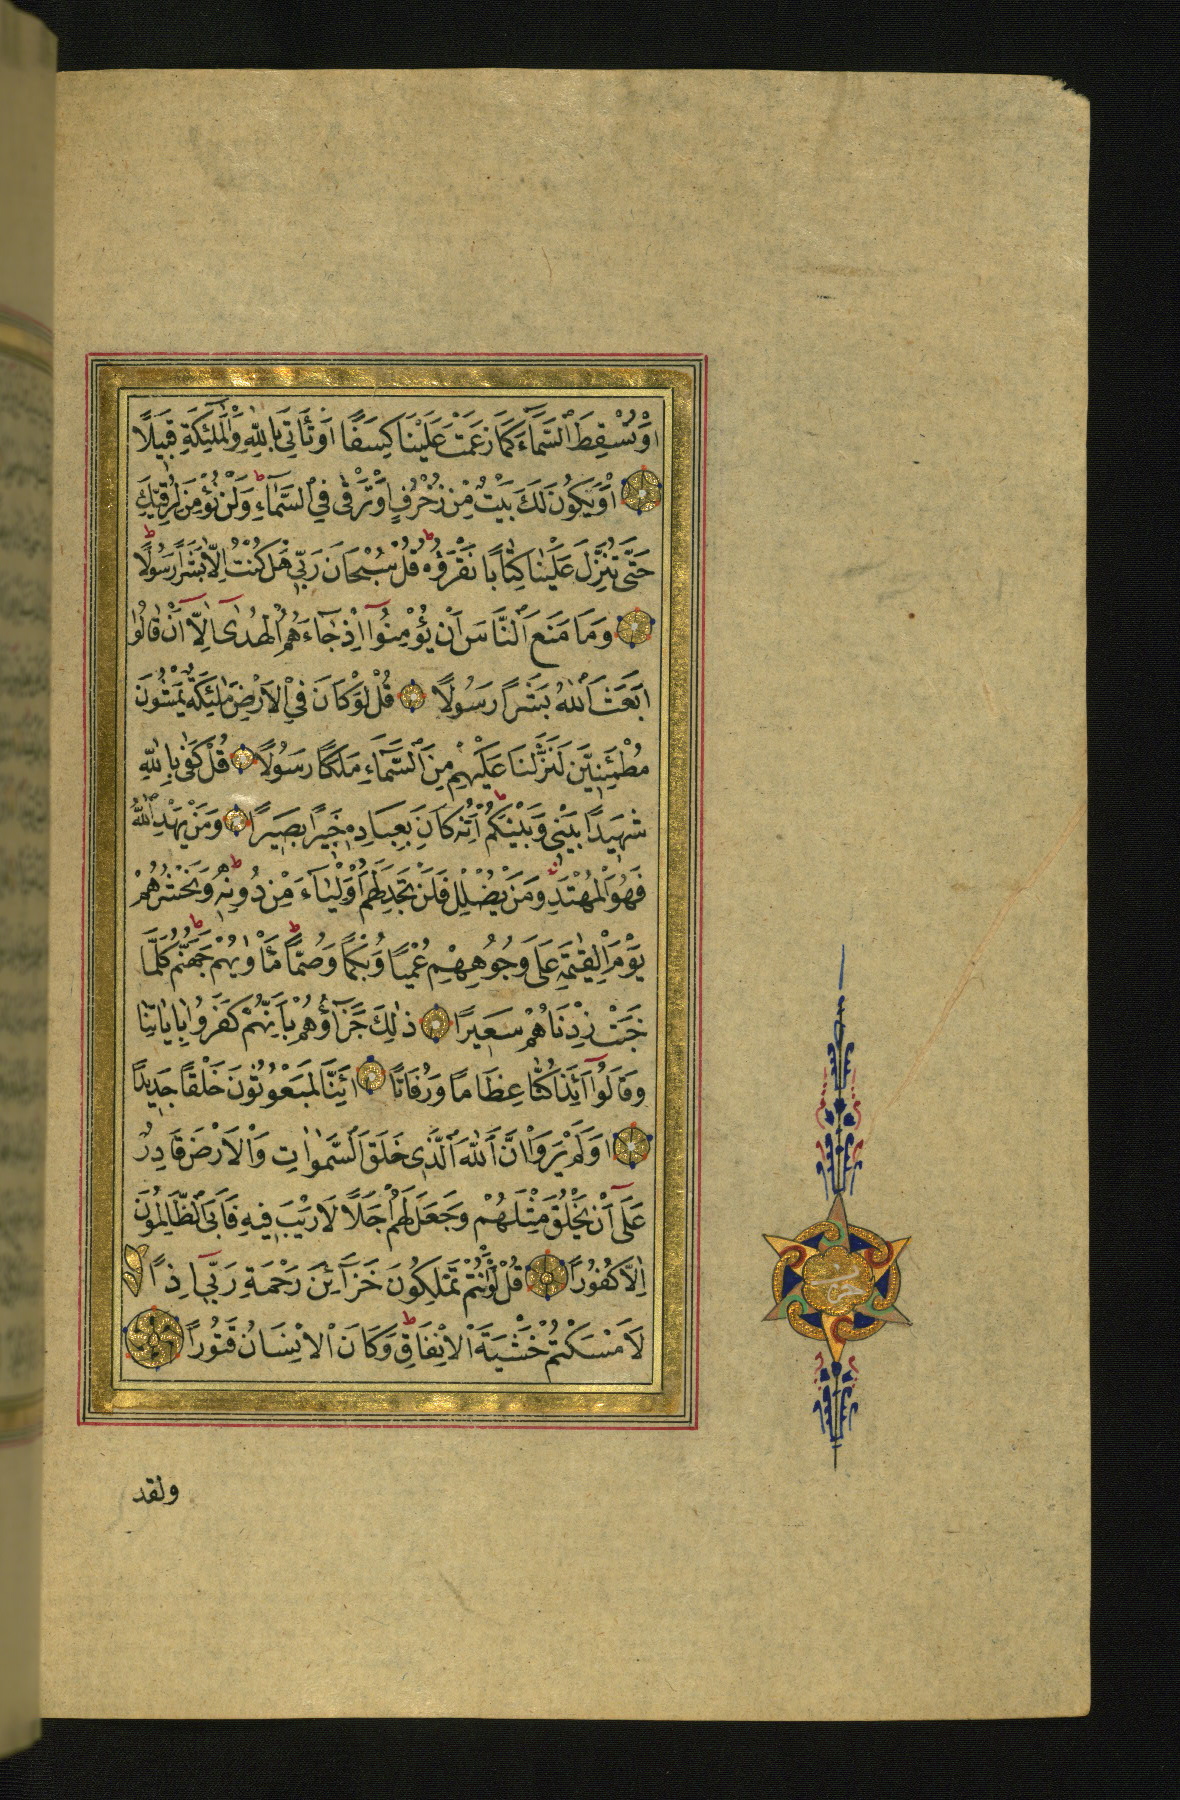 اَوْ تُسْقِطَ السَّمَٓاءَ كَمَا زَعَمْتَ عَلَيْنَا كِسَفًا اَوْ تَاْتِيَ بِاللّٰهِ وَالْمَلٰٓئِكَةِ قَبٖيلًا
اَوْ يَكُونَ لَكَ بَيْتٌ مِنْ زُخْرُفٍ اَوْ تَرْقٰى فِي السَّمَٓاءِ ط وَلَنْ نُؤْمِنَ لِرُقِيِّكَ
حَتّٰى تُنَزِّلَ عَلَيْنَا كِتَابًا نَقْرَؤُ۬هُ ط قُلْ سُبْحَانَ رَبّٖي هَلْ كُنْتُ اِلَّا بَشَرًا رَسُولًا ط
وَمَا مَنَعَ النَّاسَ اَنْ يُؤْمِنُٓوا اِذْ جَٓاءَهُمُ الْهُدٰٓى اِلَّٓا اَنْ قَالُٓوا
اَبَعَثَ اللّٰهُ بَشَرًا رَسُولًا قُلْ لَوْ كَانَ فِي الْاَرْضِ مَلٰٓئِكَةٌ يَمْشُونَ
مُطْمَئِنّٖينَ لَنَزَّلْنَا عَلَيْهِمْ مِنَ السَّمَٓاءِ مَلَكًا رَسُولًا قُلْ كَفٰى بِاللّٰهِ
شَهٖيدًا بَيْنٖي وَبَيْنَكُمْ ط اِنَّهُ كَانَ بِعِبَادِهٖ خَبٖيرًا بَصٖيرًا وَمَنْ يَهْدِ اللّٰهُ
فَهُوَ الْمُهْتَدِ وَمَنْ يُضْلِلْ فَلَنْ تَجِدَ لَهُمْ اَوْلِيَٓاءَ مِنْ دُونِهٖ ط وَنَحْشُرُهُمْ
يَوْمَ الْقِيٰمَةِ عَلٰى وُجُوهِهِمْ عُمْيًا وَبُكْمًا وَصُمًّا ط مَاْوٰيهُمْ جَهَنَّمُ ط كُلَّمَا
خَبَتْ زِدْنَاهُمْ سَعٖيرًا ذٰلِكَ جَزَٓاؤُ۬هُمْ بِاَنَّهُمْ كَفَرُوا بِاٰيَاتِنَا
وَقَالُٓوا ءَاِذَا كُنَّا عِظَامًا وَرُفَاتًا ءَاِنَّا لَمَبْعُوثُونَ خَلْقًا جَدٖيدًا
اَوَلَمْ يَرَوْا اَنَّ اللّٰهَ الَّذٖي خَلَقَ السَّمٰوَاتِ وَالْاَرْضَ قَادِرٌ
عَلٰٓى اَنْ يَخْلُقَ مِثْلَهُمْ وَجَعَلَ لَهُمْ اَجَلًا لَا رَيْبَ فٖيهِ فَاَبَى الظَّالِمُونَ
اِلَّا كُفُورًا قُلْ لَوْ اَنْتُمْ تَمْلِكُونَ خَزَٓائِنَ رَحْمَةِ رَبّٖٓي اِذًا
لَاَمْسَكْتُمْ خَشْيَةَ الْاِنْفَاقِ ط وَكَانَ الْاِنْسَانُ قَتُورًا
ولقد